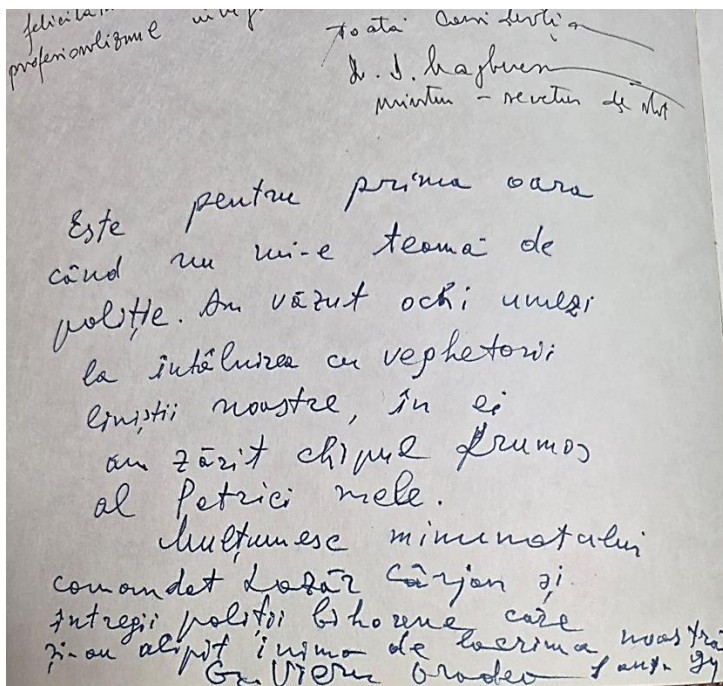 profesionalizme
toată
Este pentru prima oara
când nu mi-e teamă de
poliție. Am văzut ochi umezi
la întâlnirea cu veghetorii
liniștii noastre, în ei
am zărit chipul frumos
al Patriei mele.
Mulțumesc minunatului
comandat Lazăr Cârjan și
întregii poliții bihorene care
și-au alipit inima de lacrima noastră
Gr. Vieru Oradea